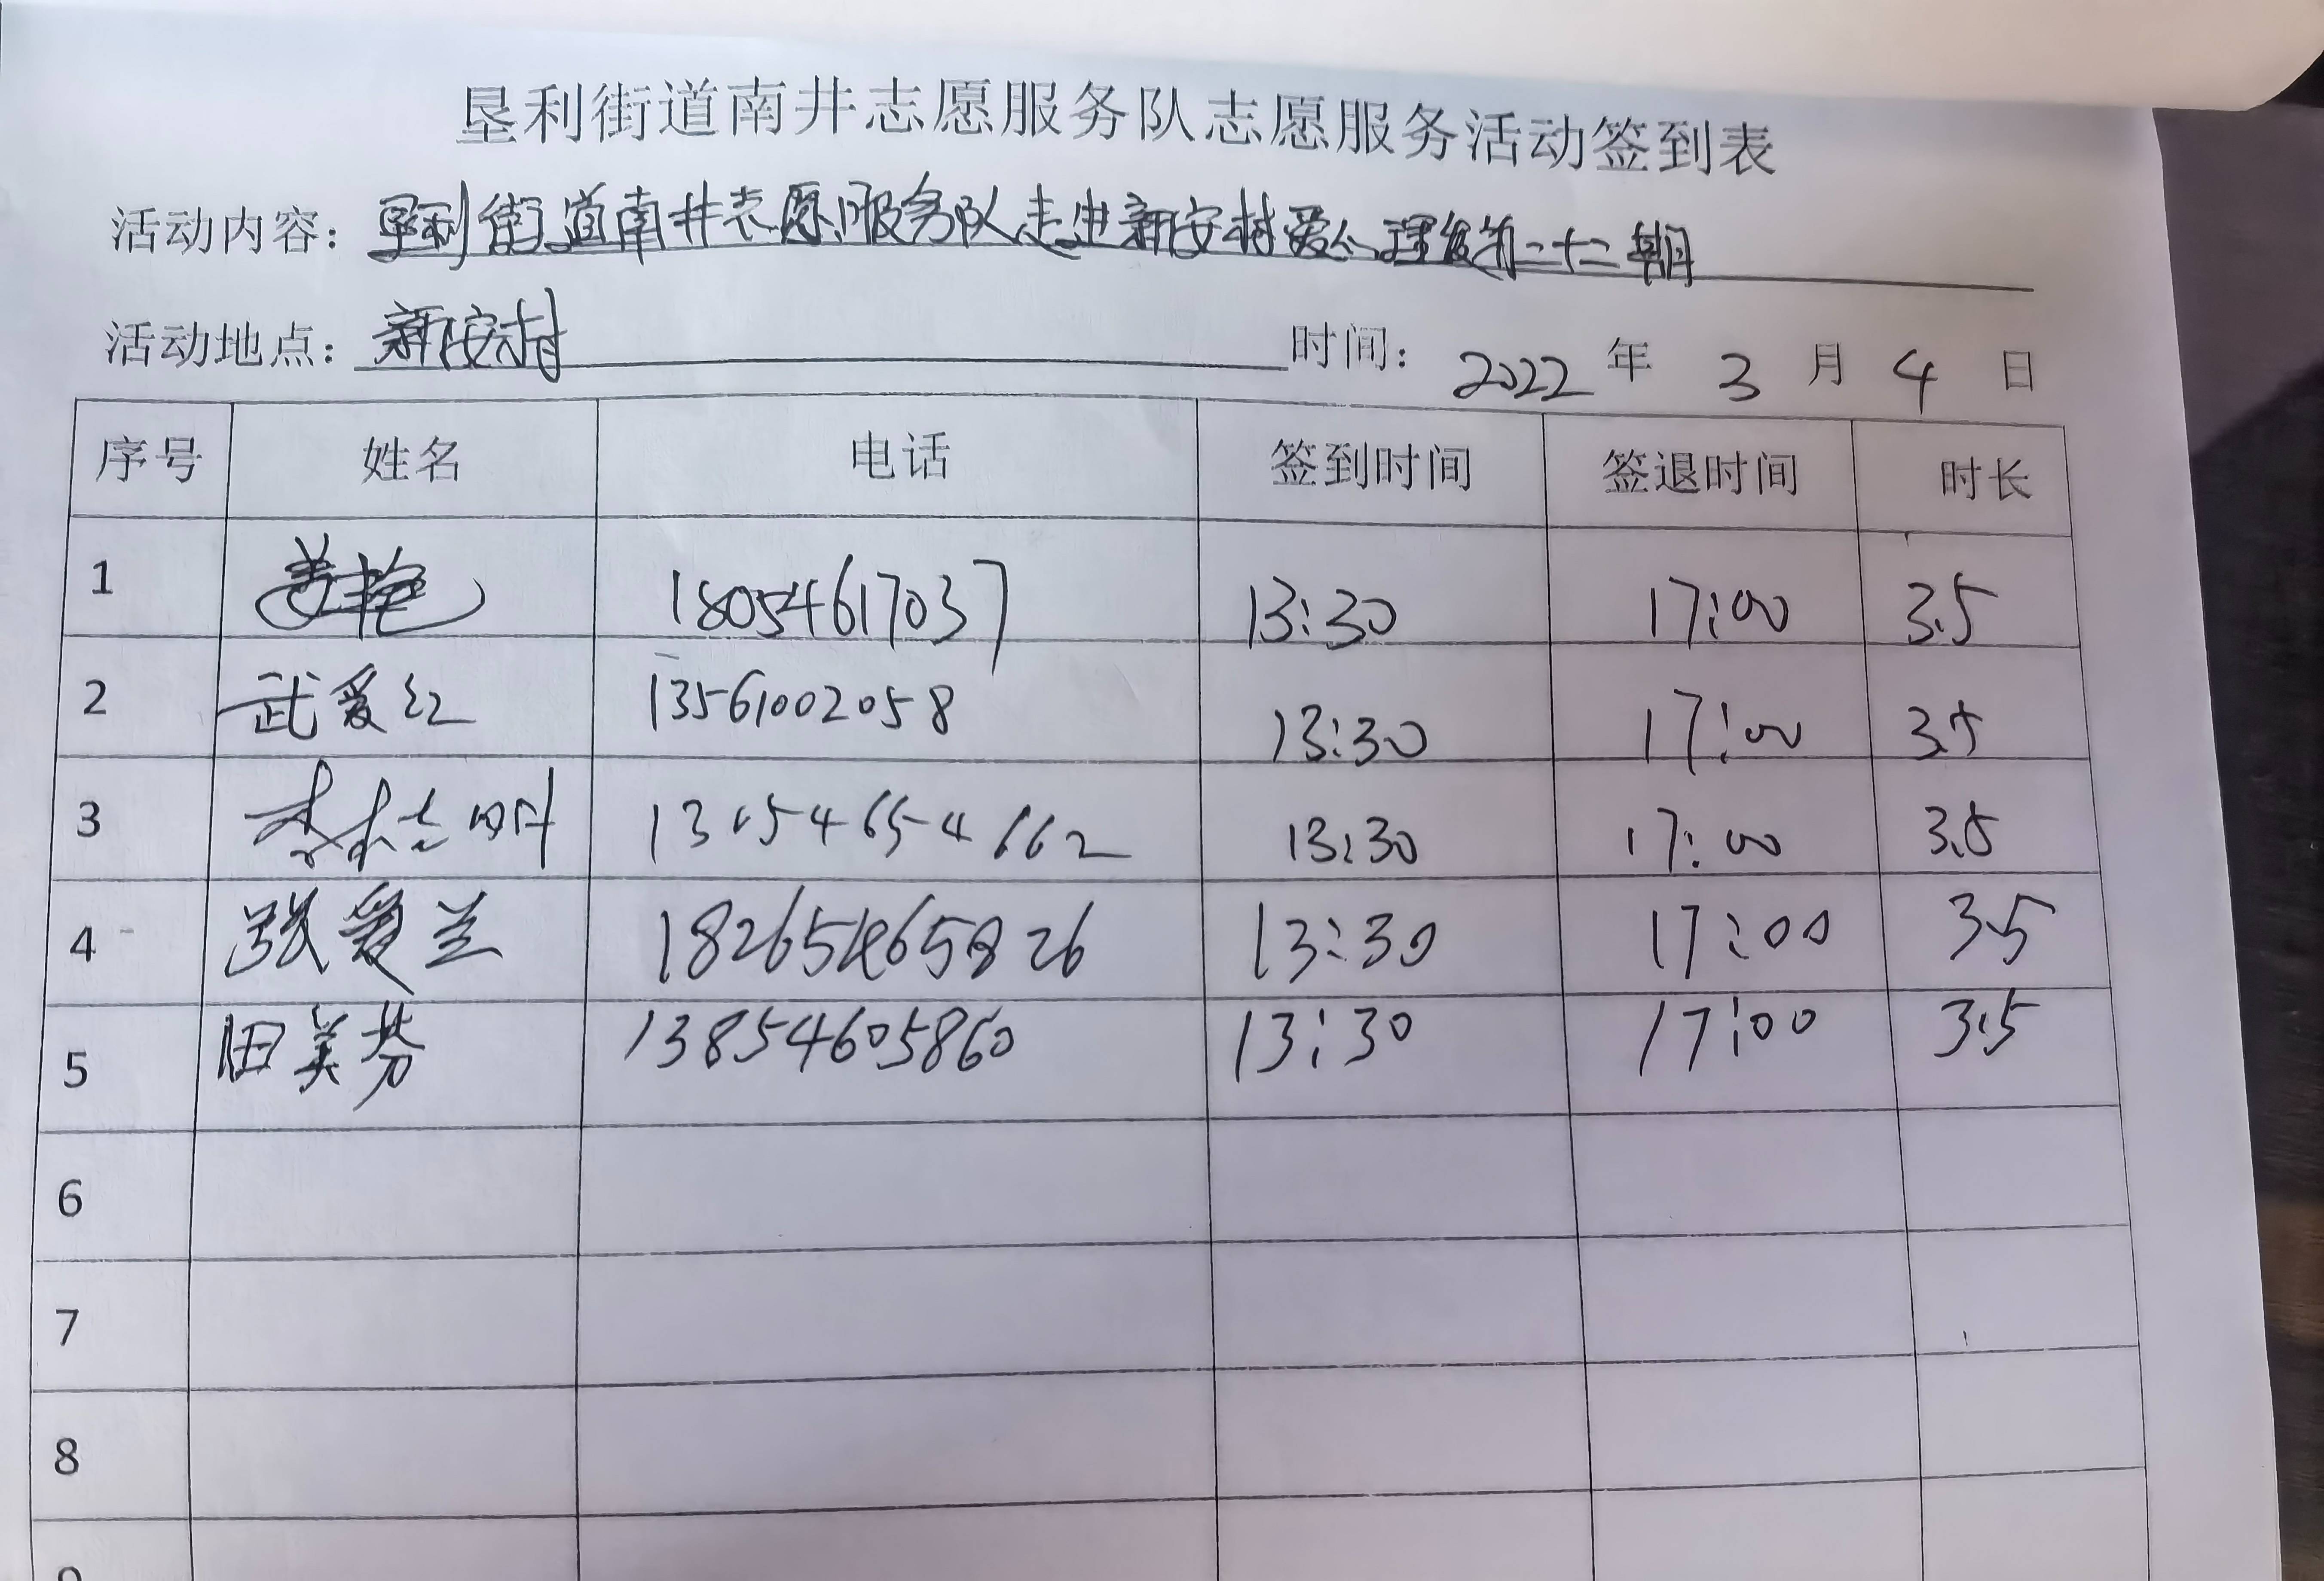 垦利街道南井志愿服务队志愿服务活动签到表
活动内容：垦利街道南井志愿服务队走进新安村爱心理发第二十二期
活动地点：新安村 时间：2022年3月4日
序号 姓名 电话 签到时间 签退时间 时长
1 18054617037 13:30 17:00 3.5
2 武爱红 13561002058 13:30 17:00 3.5
3 13:30 17:00 3.5
4 张爱兰 13:30 17:00 3.5
5 田美芬 13854605860 13:30 17:00 3.5
6
7
8